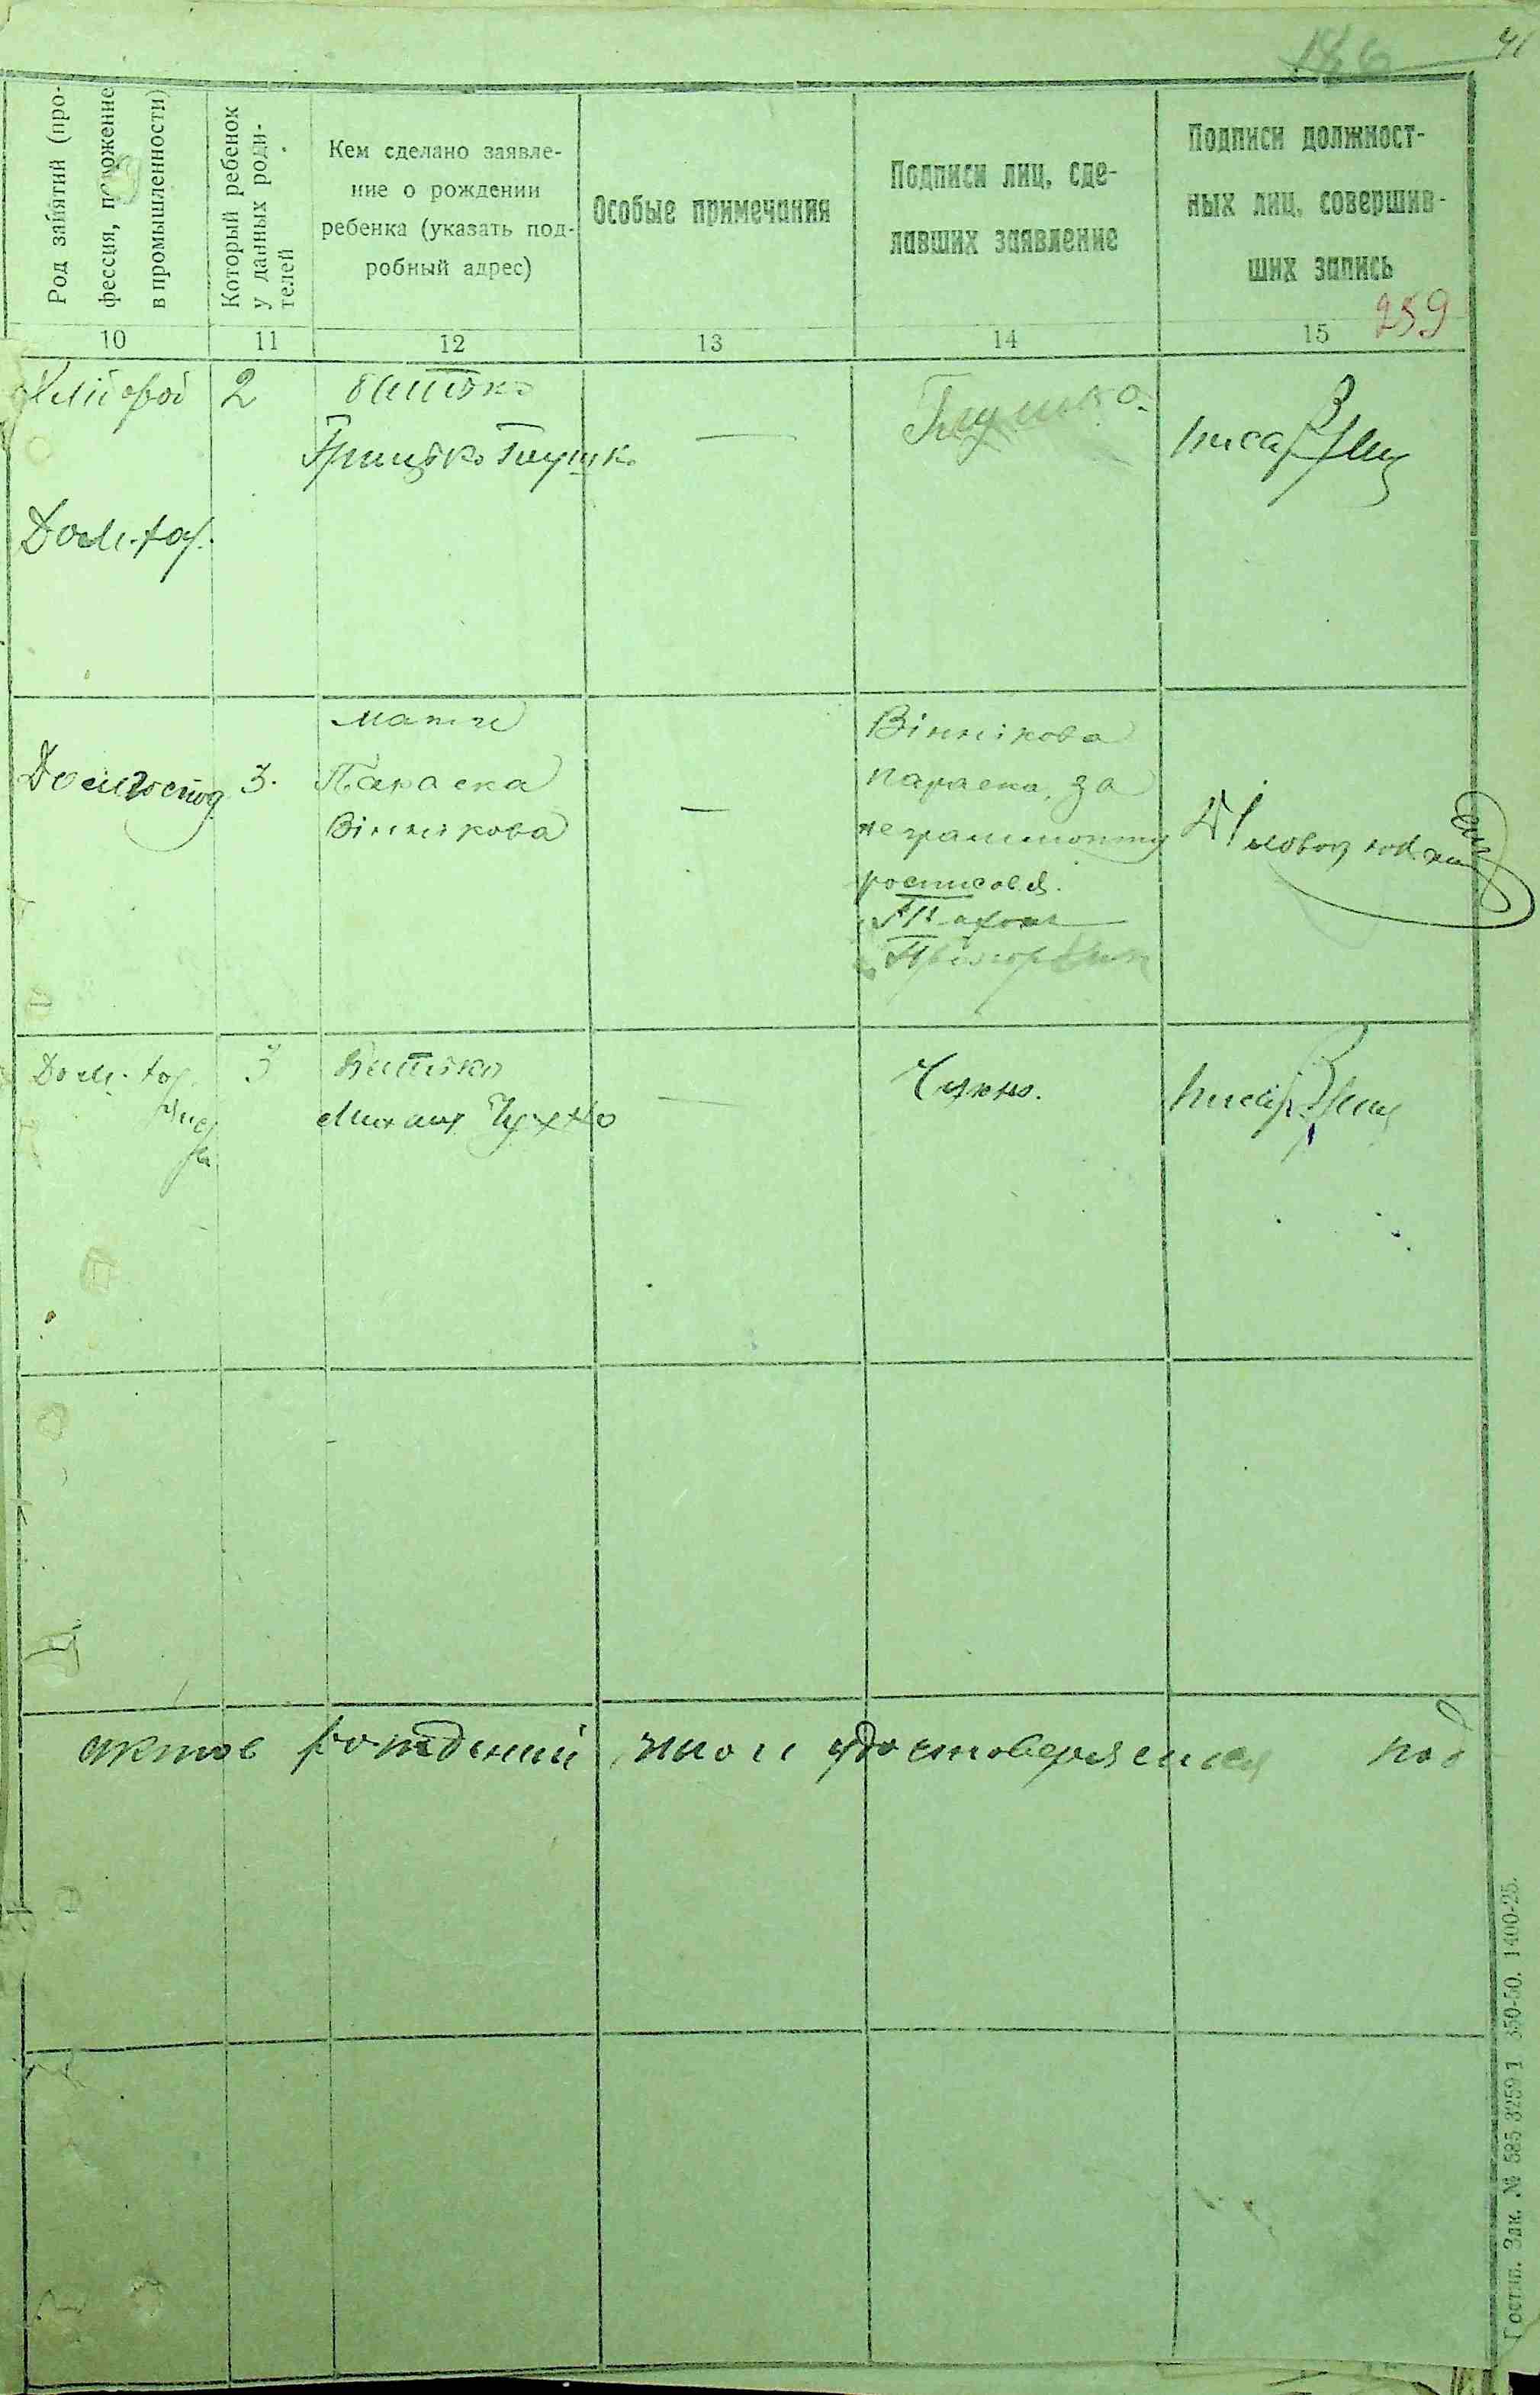 186
41
Род занятий (про-
фессия, положение
в промышленности)
Который ребенок
у данных роди-
телей
Кем сделано заявле-
ние о рождении
ребенка (указать под-
робный адрес)
Особые примечания
Подписи лиц, сде-
лавших заявление
Подписи должност-
ных лиц, совершив-
ших запись
259
10
11
12
13
14
15
2
батько
Грицько Глушко
—
Глушко.
Дом. гос.
мати
Параска
Віннікова
Домгоспод.
3.
—
Віннікова
Параска, за
неграмотну
росписовся
Дом. гос.
3
Батько
Михаил Чухно
—
Чухно.
актов рождений, что и удостоверяется под
Гостип. Зак. № 585 3259 1 350-50. 1400-25.